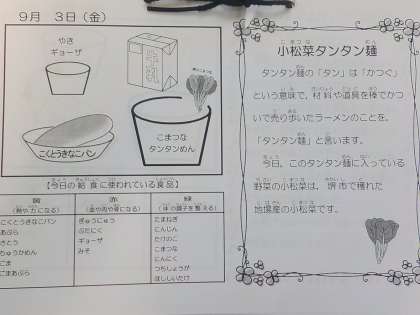 9月 3日（金）
やき
ギョーザ
こまつな
こくとうきなこパン
こまつな
タンタンめん
【今日の給食に使われている食品】
黄
（熱や力になる）
こくとうきなこパン
あぶら
さとう
ちゅうかめん
ごま
ごまあぶら
赤
（血や肉や骨になる）
ぎゅうにゅう
ぶたにく
ギョーザ
みそ
緑
（体の調子を整える）
たまねぎ
にんじん
たけのこ
こまつな
にんにく
つちしょうが
ほししいたけ
小松菜タンタン麺
タンタン麺の「タン」は「かつぐ」
という意味で、材料や道具を棒でかつ
いで売り歩いたラーメンのことを、
「タンタン麺」と言います。
今日、このタンタン麺に入っている
野菜の小松菜は、堺市で穫れた
地場産の小松菜です。